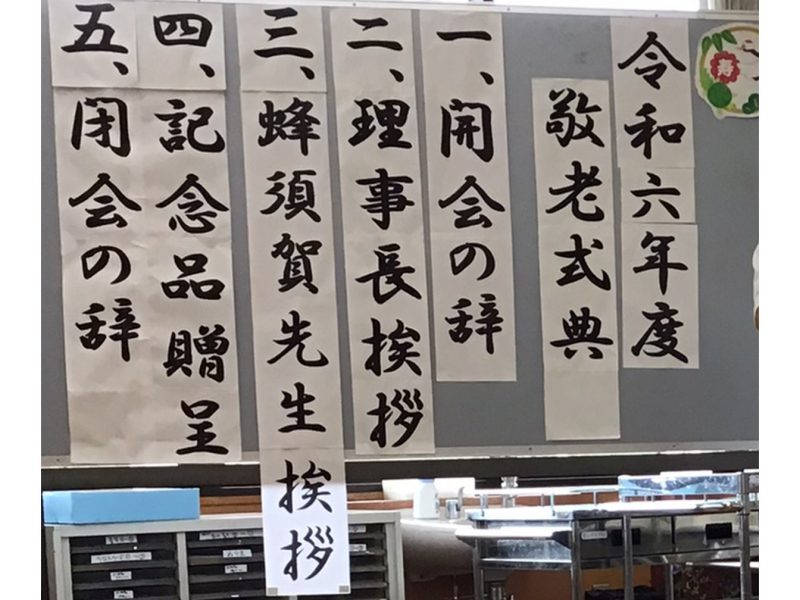 令和六年度
敬老式典
一、開会の辞
二、理事長挨拶
三、蜂須賀先生挨拶
四、記念品贈呈
五、閉会の辞
寿